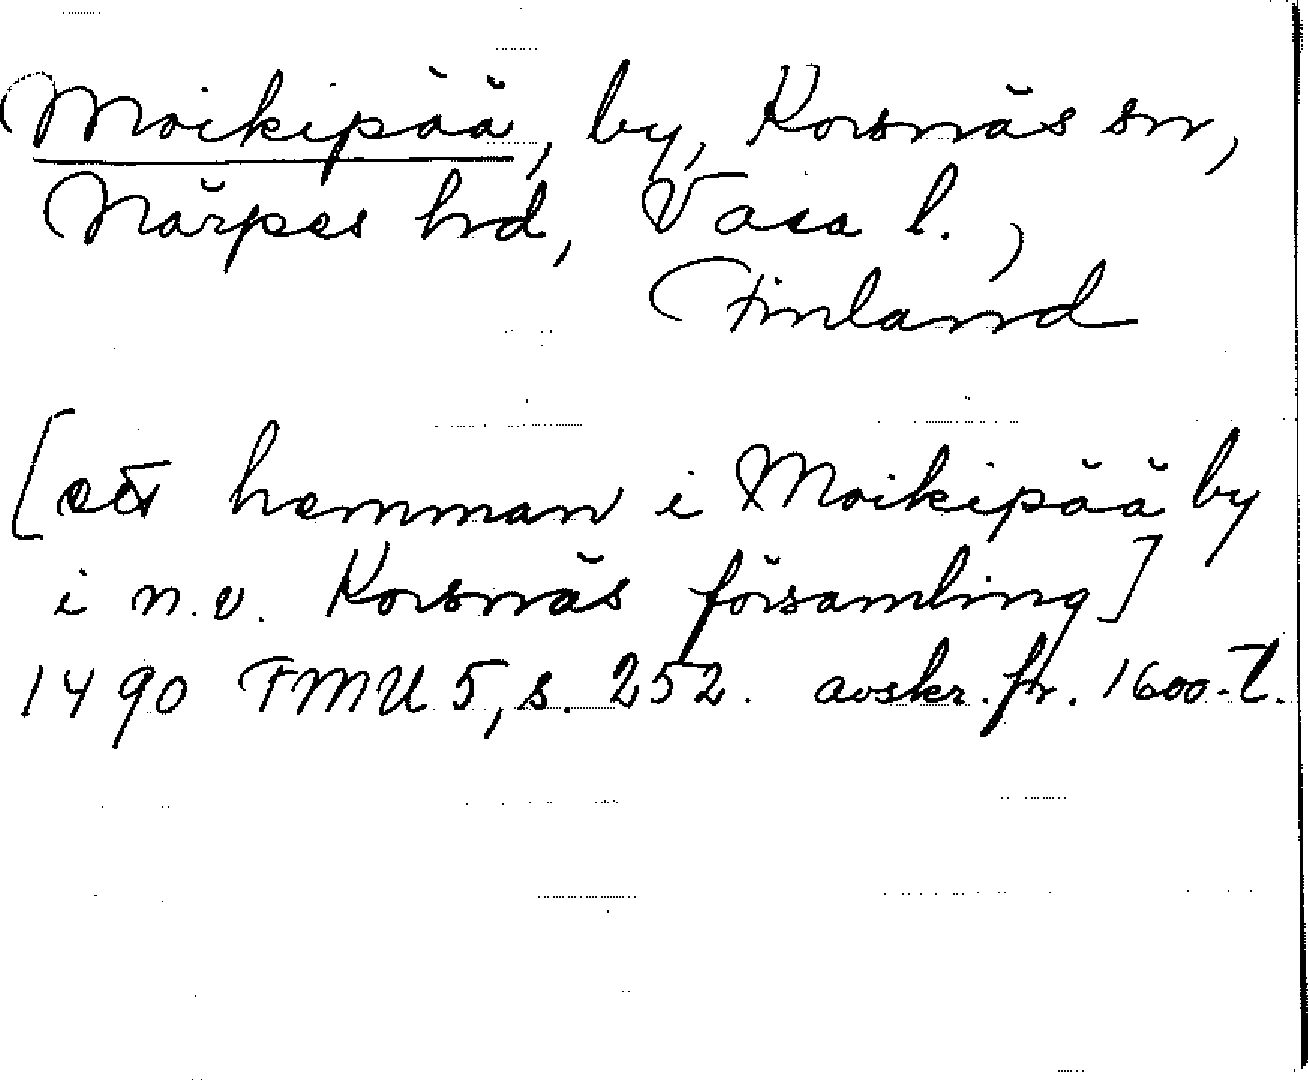 Moikipää, by, Korsnäs sn,
Närpes hd, Vasa l.,
Finland
[ett hemman i Moikipää by
i n.v. Korsnäs församling]
1490 FMU 5, s. 252. avskr. fr. 1600-t.